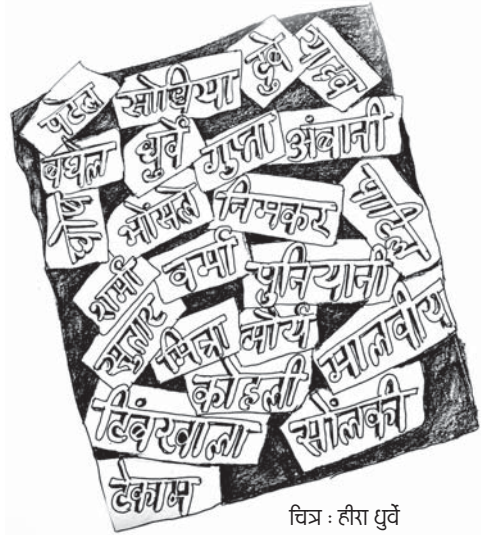 पटेल सोंधिया दुबे यादव
बघेल धुर्वे गुप्ता अंबानी
घोष भोंसले निमकर पाटिल
शर्मा वर्मा पुनियानी
सुतार मित्रा मौर्य मालवीय
कोहली
टिंबरवाला सोलंकी
टेकाम
चित्र : हीरा धुर्वे